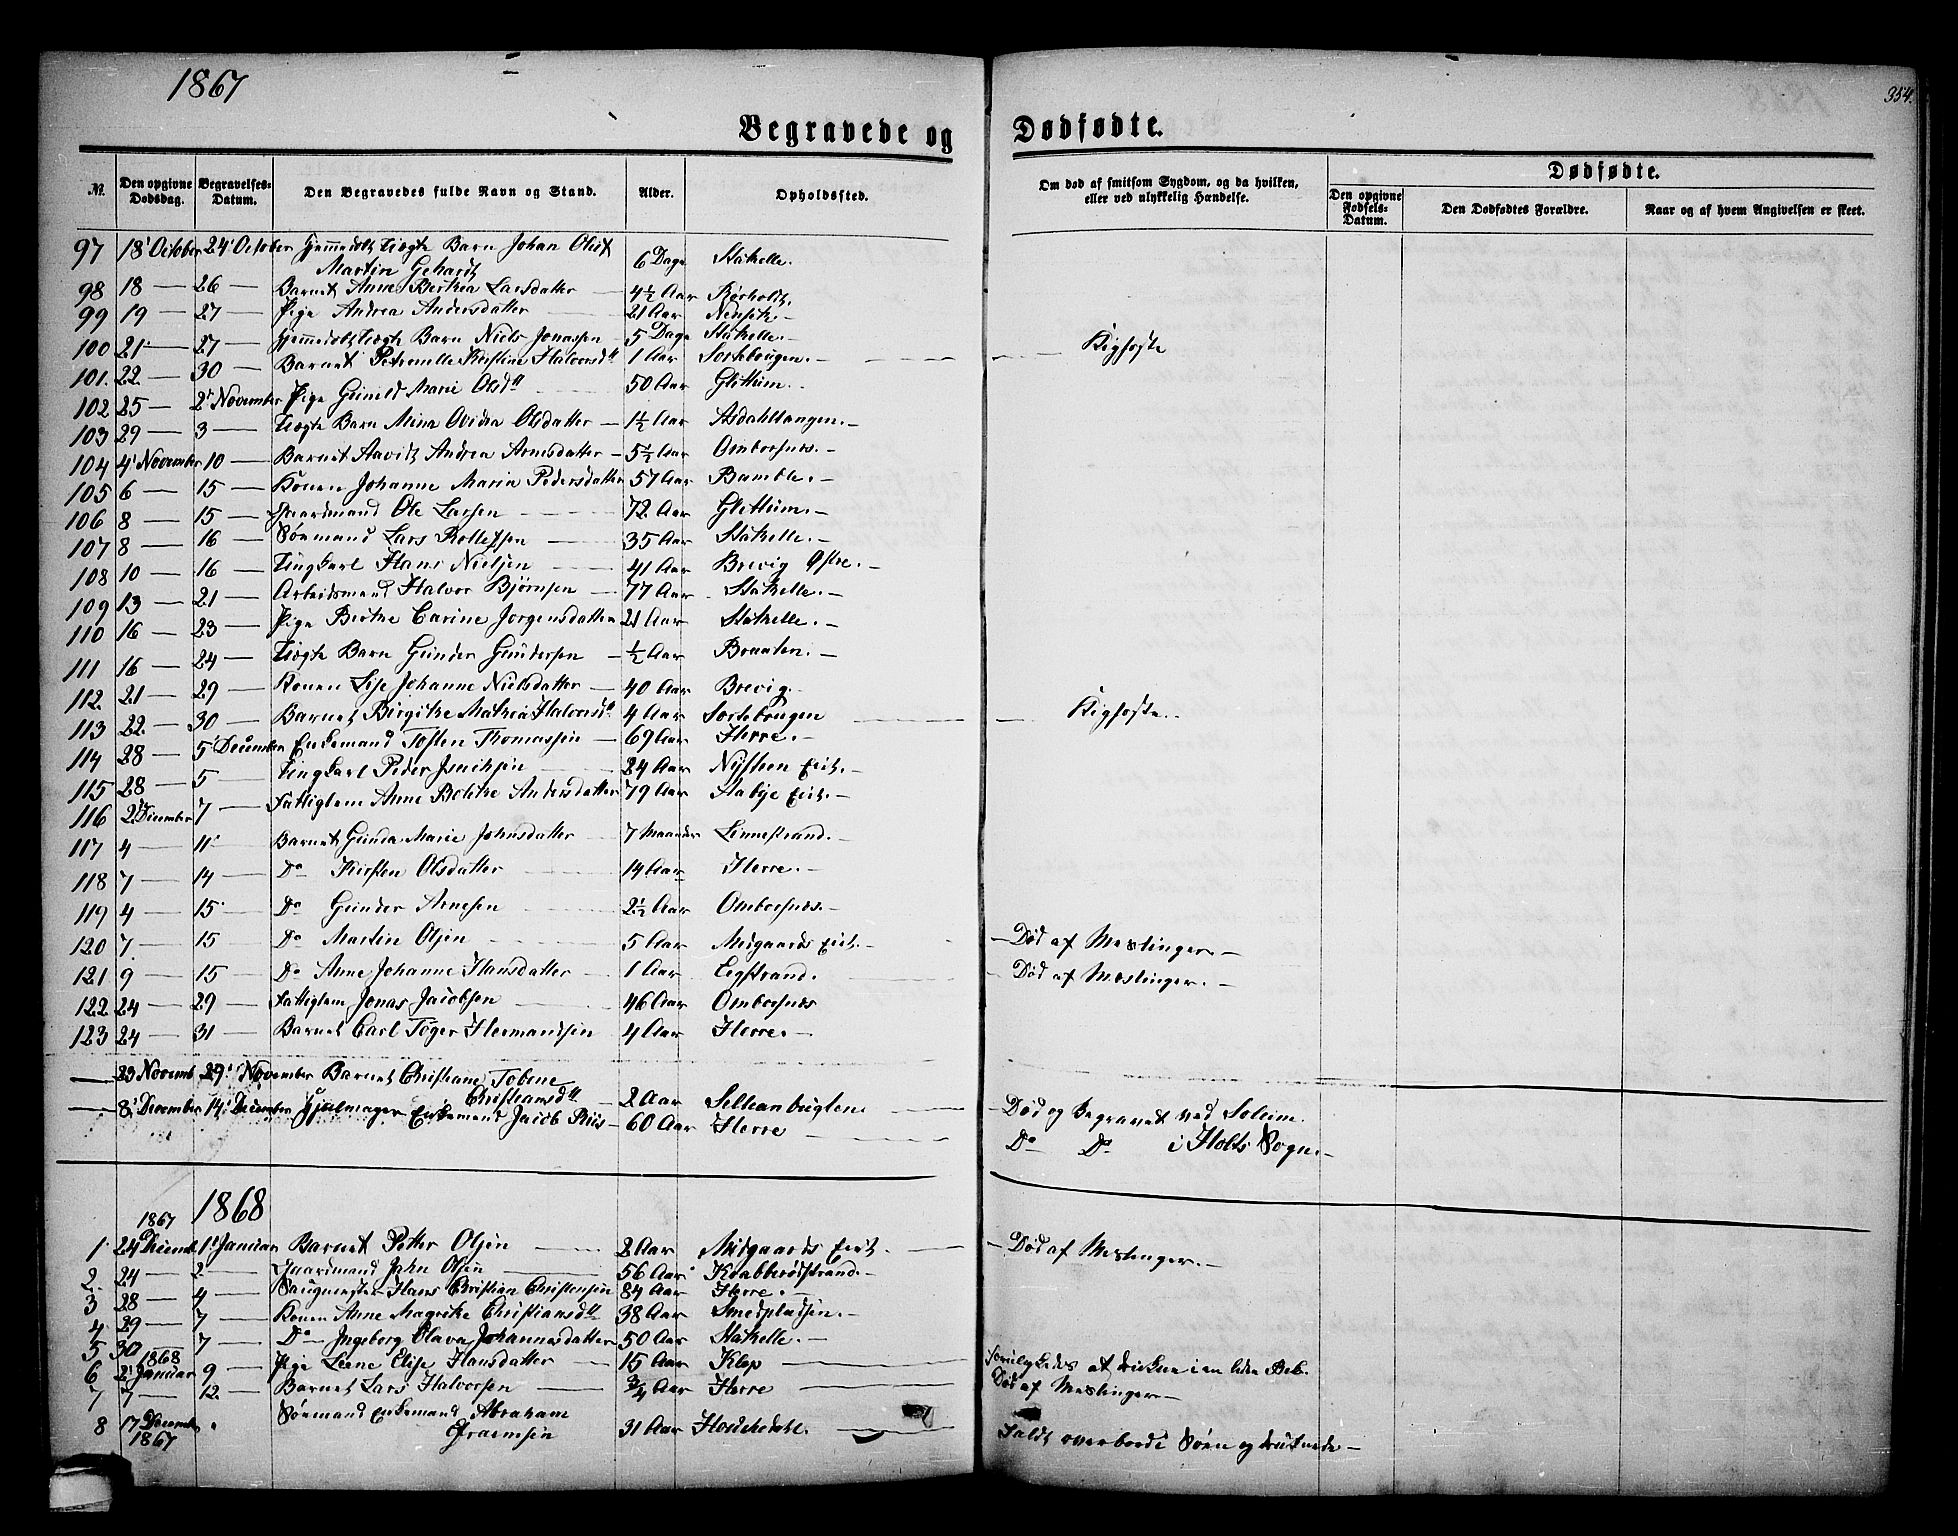 1867
354.
Begravede og Dødfødte.
№ Den opgivne Dødsdag. Begravelses-Datum. Den Begravedes fulde Navn og Stand. Alder. Opholdssted. Om død af smitsom Sygdom, og da hvilken, eller ved ulykkelig Hændelse. Dødfødte. Den opgivne Fødsels-Datum. Den Dødfødtes Forældre. Naar og af hvem Angivelsen er skeet.
97 18' October 24' October Hjemmedøbt Uægte Barn Johan
Martin 6 Dage Stathelle.
98 18 — 26 — Barnet Anne Berthea Larsdatter — 4½ Aar Rørholt.
99 19 — 27 — Pige Andrea Andersdatter — 21 Aar
100 21' — 27 — Hjemmedøbt Uægte Barn Niels Jonassen 5 Dage Stathelle. —
101. 22. — 30 — Barnet Petronelle Kirstine Halvorsdtr 1 Aar — Kighoste
102 25 — 2' November Pige Gunild Marie Olsdtr — 50 Aar Glittum. —
103 29 — 3 — Uægte Barn Mina Ovidia Olsdatter — 1½ Aar Asdahltangen. —
104 4' November 10 — Barnet Andrea Arnesdatter — 5½ Aar Omborsnes. —
105 6 — 15 — Konen Johanne Maria Pedersdatter 57 Aar Bamble. —
106 8 — 15 — Gaardmand Ole Larsen — 72 Aar Glittum. —
107 8 — 16 — Sømand Lars Rollefsen — 35 Aar Stathelle. —
108 10 — 16 — Ungkarl Hans Nielsen — 41 Aar Brevig Østre. —
109 13 — 21 — Arbeidsmand Halvor Bjørnsen — 77 Aar Stathelle. —
110 16 — 23 — Pige Berthe Carine Jørgensdatter 21 Aar Stathelle. —
111 16 — 24 — Uægte Barn Gunder Gundersen — ½ Aar Braaten. —
112. 21 — 29 — Konen Lise Johanne Nielsdatter — 40 Aar Brevig. —
113 22. — 30 — Barnet Birgithe Mathea Halvorsdtr 4 Aar — Kighoste. .
114 28 — 5' December Enkemand Tosten Thomassen — 69 Aar Herre. —
115 28 — 5 — Ungkarl Peder — 24 Aar
116 2' December 7 — Fattiglem Anne Bolethe Andersdatter 79 Aar
117 4 — 11' Barnet Gunda Marie Johnsdatter — 7 Maaneder Linnestrand. —
118 7 — 14 — Do Kirsten Olsdatter — 14 Aar Herre. —
119 4 — 15' — Do Gunder Arnesen — 2½ Aar Omborsnes. —
120 7. — 15 — Do Martin Olsen — 5 Aar — Død af Meslinger. —
121 9 — 15 — Do Anne Johanne Hansdatter — 1 Aar Eegstrand. — Død af Meslinger. —
122 24 — 29 — Fattiglem Jonas Jacobsen — 46 Aar Omborsnes
123 24 — 31 — Barnet Carl Tøger Hermandsen 4 Aar Herre. —
— 23 Novemb 29' November Barnet Christiane Tobene
Christiansdtr — 2 Aar — Død og Begravet ved Soleim.
— 8' December 14' December Enkemand Jacob Riis — 60 Aar Herre — Do Do i Holts Sogn. —
1867 1868
1. 24 Decemb. 1' Januar Barnet Petter Olsen — 2 Aar — Død af Meslinger. —
2. 24 — 2 — Gaardmand John Olsen — 56 Aar Krabberødstrand. —
3 28 — 4 — Saugmester Hans Christian Christensen 84 Aar Herre. —
4. 29 — 7 — Konen Anne Magrethe Christiansdtr 38 Aar Smedpladsen. —
5 30 — 7 — Do Ingeborg Olava Johannesdatter 50 Aar Stathelle —
1868
6 2' Januar 9 — Pige Leene Elise Hansdatter — 15 Aar Klep — Forulykkedes
7 7 — 12. — Barnet Lars Halvorsen — ¾ Aar Herre — Død af Meslinger —
8 17 Decemb. 1867 Sømand Enkemand Abraham
31 Aar — Faldt overborde i Søen og druknede —